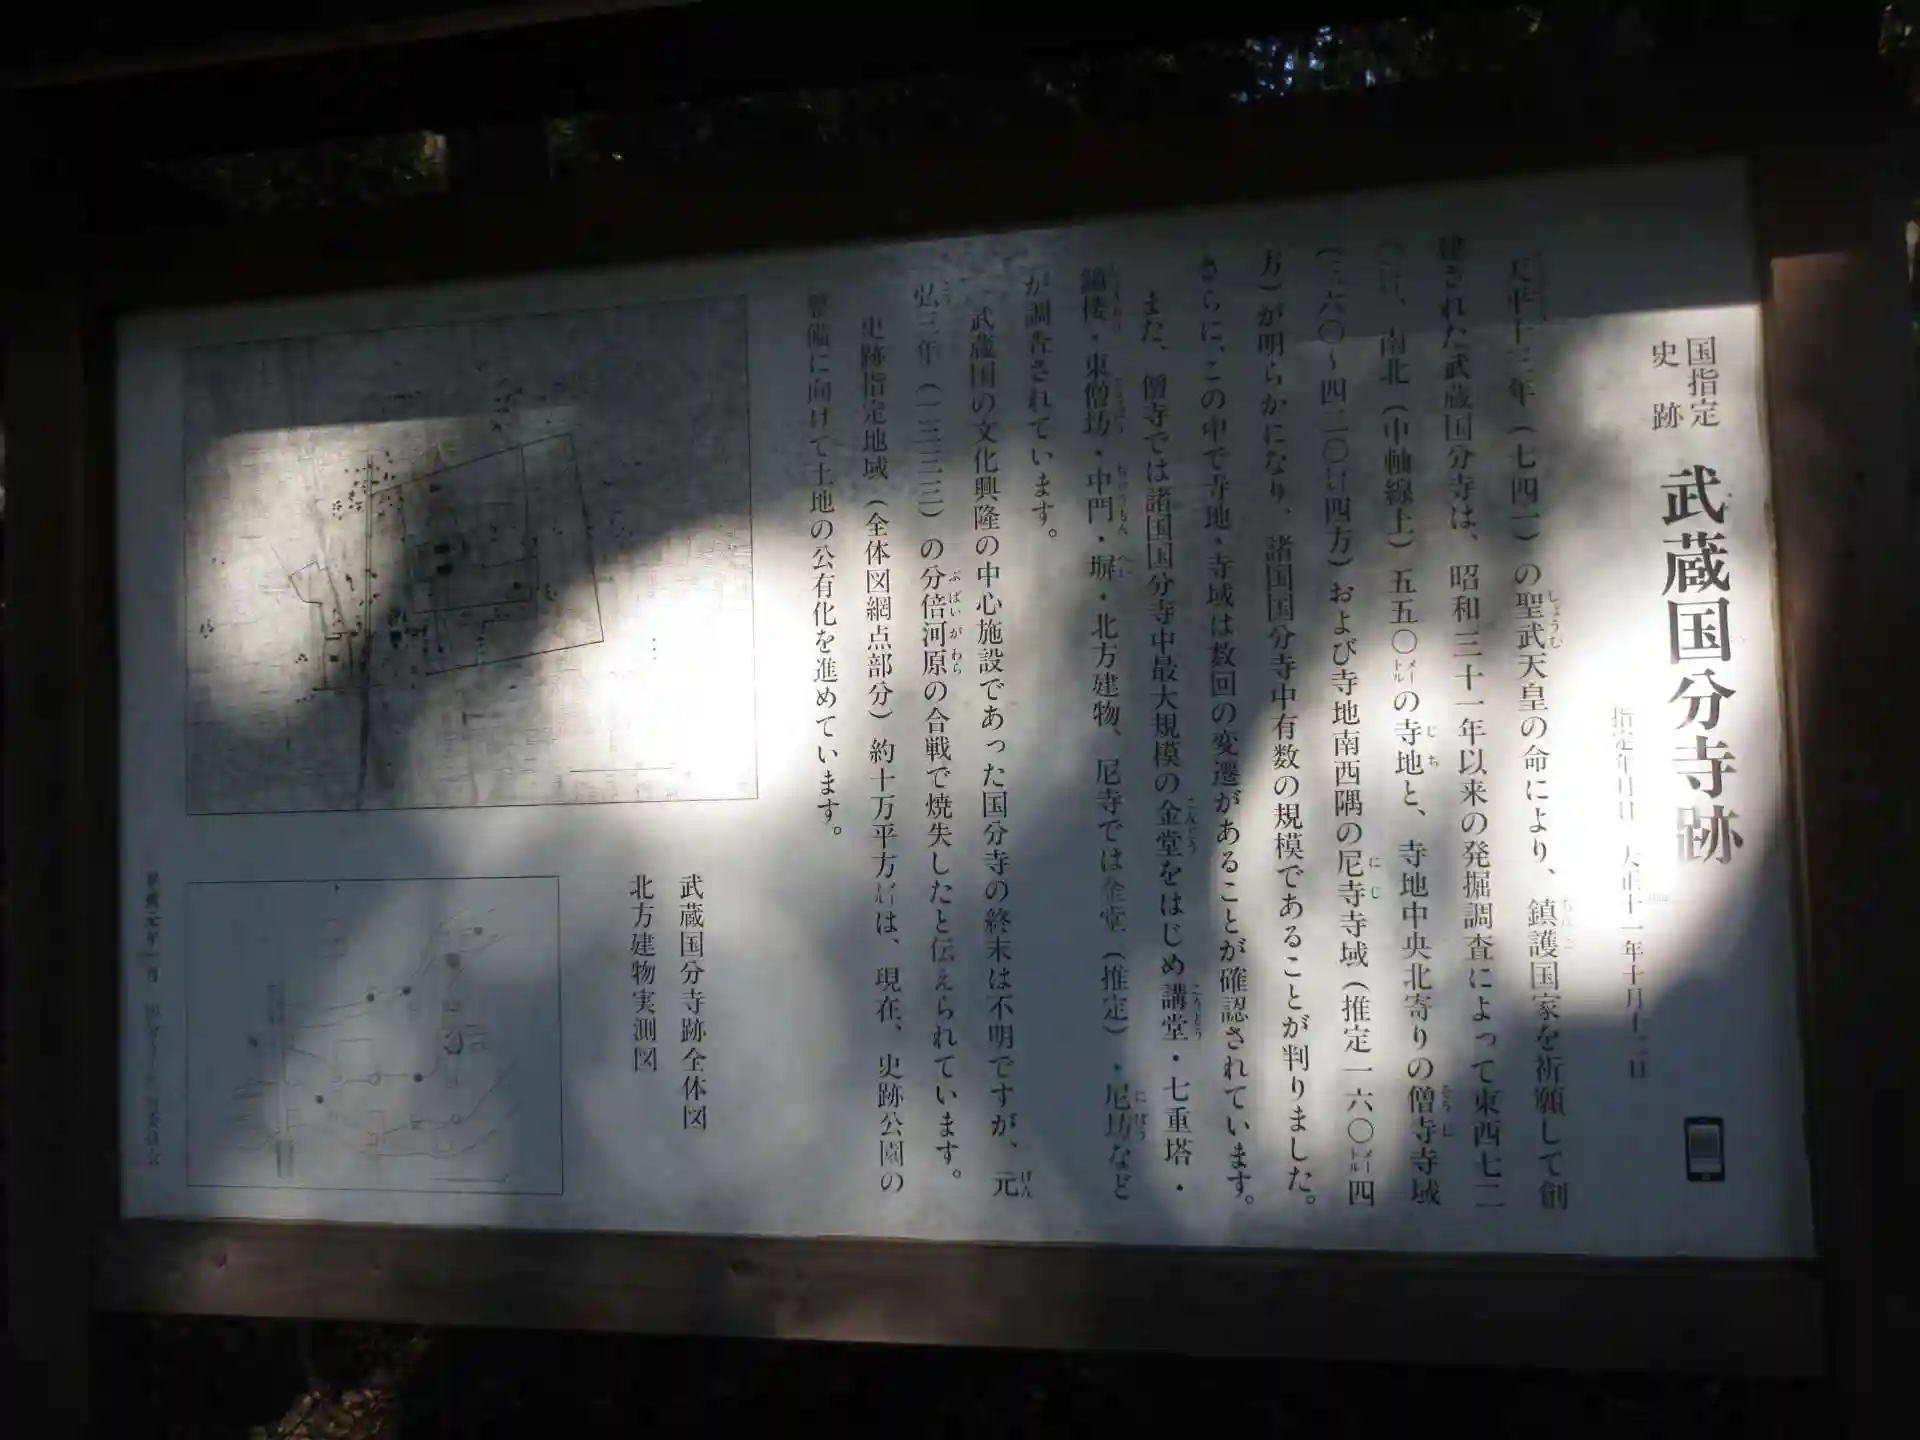 国指定
史跡
武蔵国分寺跡
指定年月日 大正十一年十月十二日
天平十三年（七四一）の聖武天皇の命により、鎮護国家を祈願して創
建された武蔵国分寺は、昭和三十一年以来の発掘調査によって東西七二
〇㍍、南北（中軸線上）五五〇㍍の寺地と、寺地中央北寄りの僧寺寺域
（三六〇～四二〇㍍四方）および寺地南西隅の尼寺寺域（推定一六〇㍍四
方）が明らかになり、諸国国分寺中有数の規模であることが判りました。
さらに、この中で寺地・寺域は数回の変遷があることが確認されています。
また、僧寺では諸国国分寺中最大規模の金堂をはじめ講堂・七重塔・
鐘楼・東僧坊・中門・塀・北方建物、尼寺では金堂（推定）・尼坊など
が調査されています。
武蔵国の文化興隆の中心施設であった国分寺の終末は不明ですが、元
弘三年（一三三三）の分倍河原の合戦で焼失したと伝えられています。
史跡指定地域（全体図網点部分）約十万平方㍍は、現在、史跡公園の
整備に向けて土地の公有化を進めています。
武蔵国分寺跡全体図
北方建物実測図